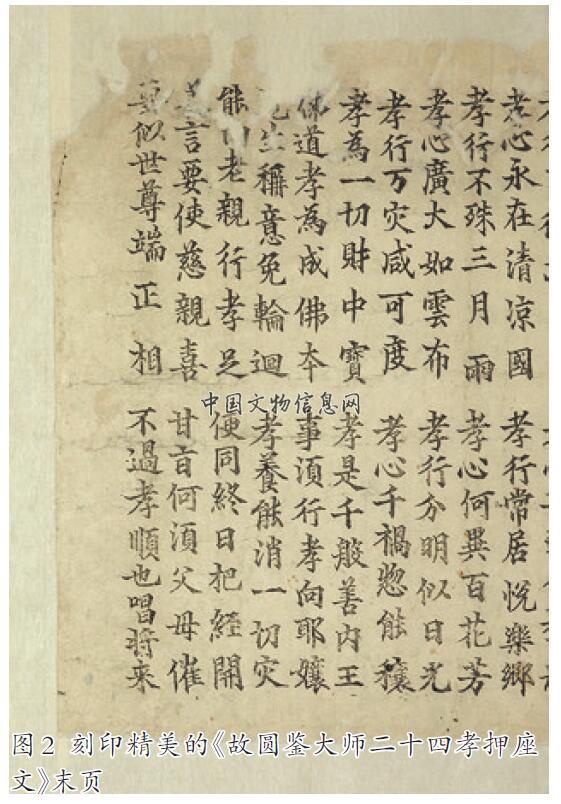 孝心永在清凉國 孝行常居悅樂鄉
孝行不殊三月雨 孝心何異百花芳
孝心廣大如雲布 孝行分明似日光
孝行万灾咸可度 孝心千禍惣能穰
孝為一切財中寶 孝是千般善内王
佛道孝為成佛夲 事湏行孝向耶孃
生稱意免輪迴 孝養能消一切灾
能向老親行孝足 便同終日把經開
言要使慈親喜 甘旨何湏父母催
要似世尊端正相 不過孝順也唱將来
中国文物信息网
图2 刻印精美的《故圆鉴大师二十四孝押座
文》末页